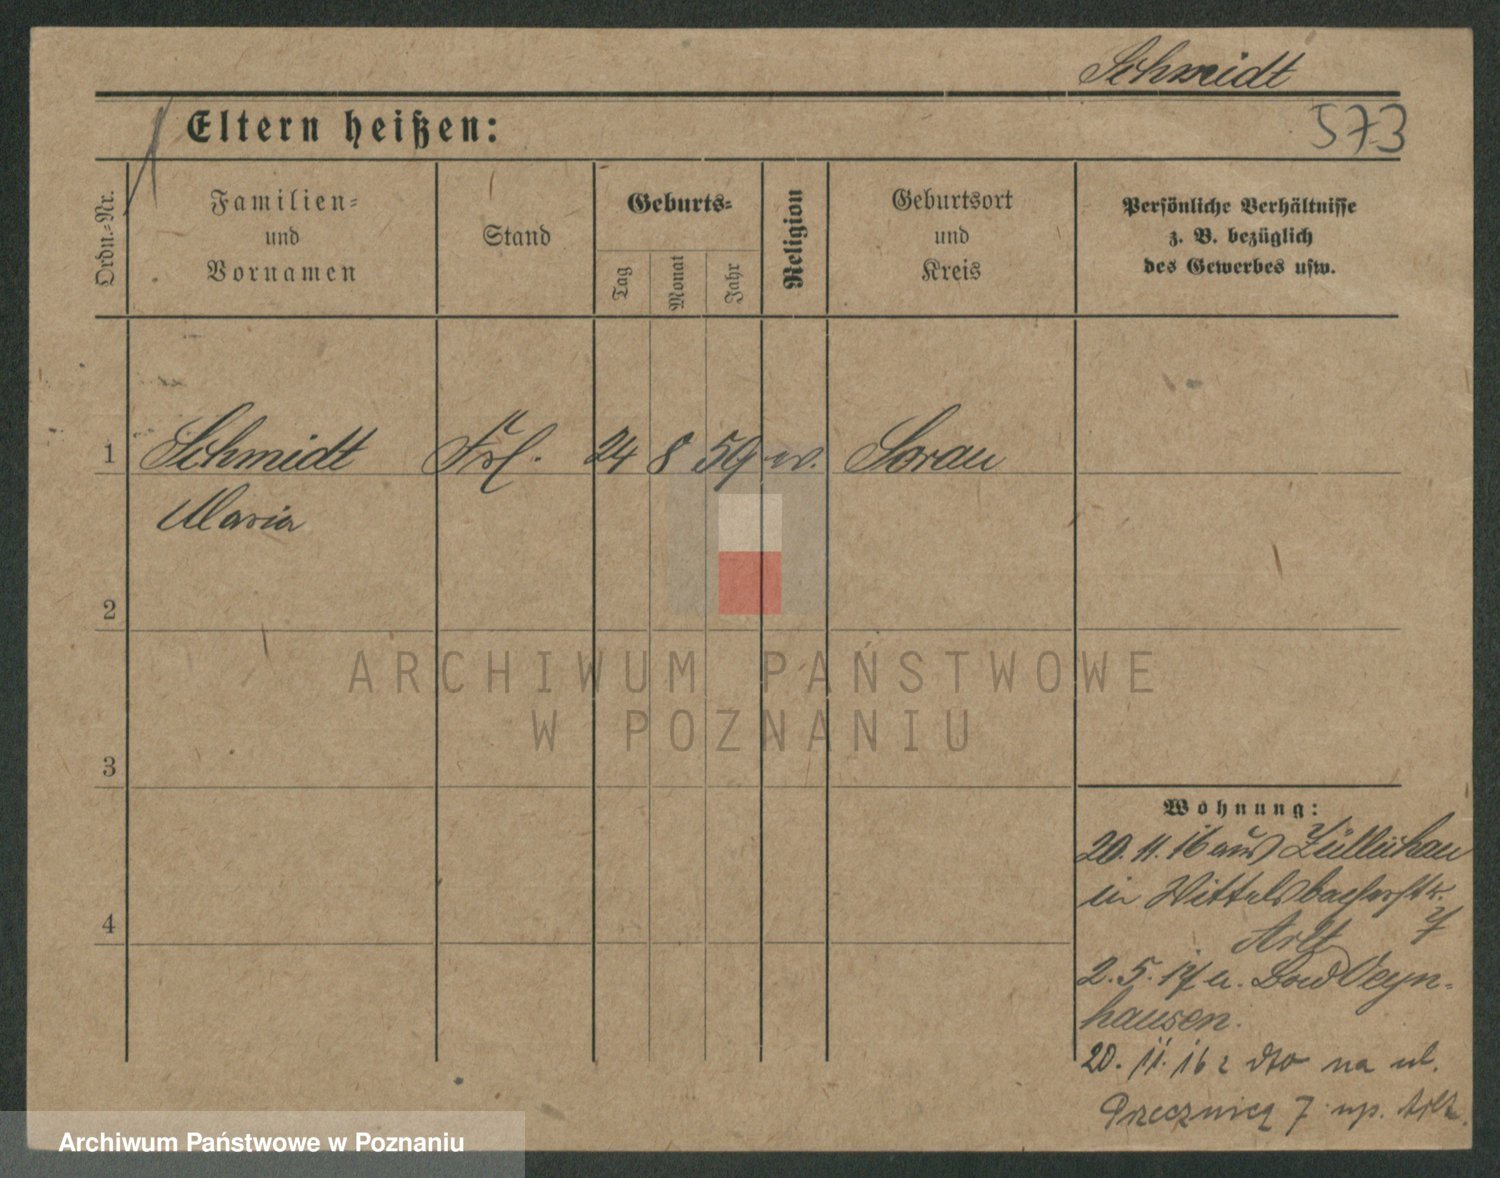 Schmidt
573
Eltern heißen:
Ordn.-Nr.
Familien-
und
Vornamen
Stand
Geburts-
Tag
Monat
Jahr
Religion
Geburtsort
und
Kreis
Persönliche Verhältnisse
z. B. bezüglich
des Gewerbes usw.
1 Schmidt Frl. 24 8 59 ev. Sorau
Maria
2
3
4
Wohnung:
20.11.16 aus Züllichau
in Wittelsbacherstr.
7
Arlt
2.5.17 n. Bad Oeyn-
hausen.
20. 11. 16 z dto na ul.
Przecznicą 7 up. Arlt.
ARCHIWUM PAŃSTWOWE
W POZNANIU
Archiwum Państwowe w Poznaniu